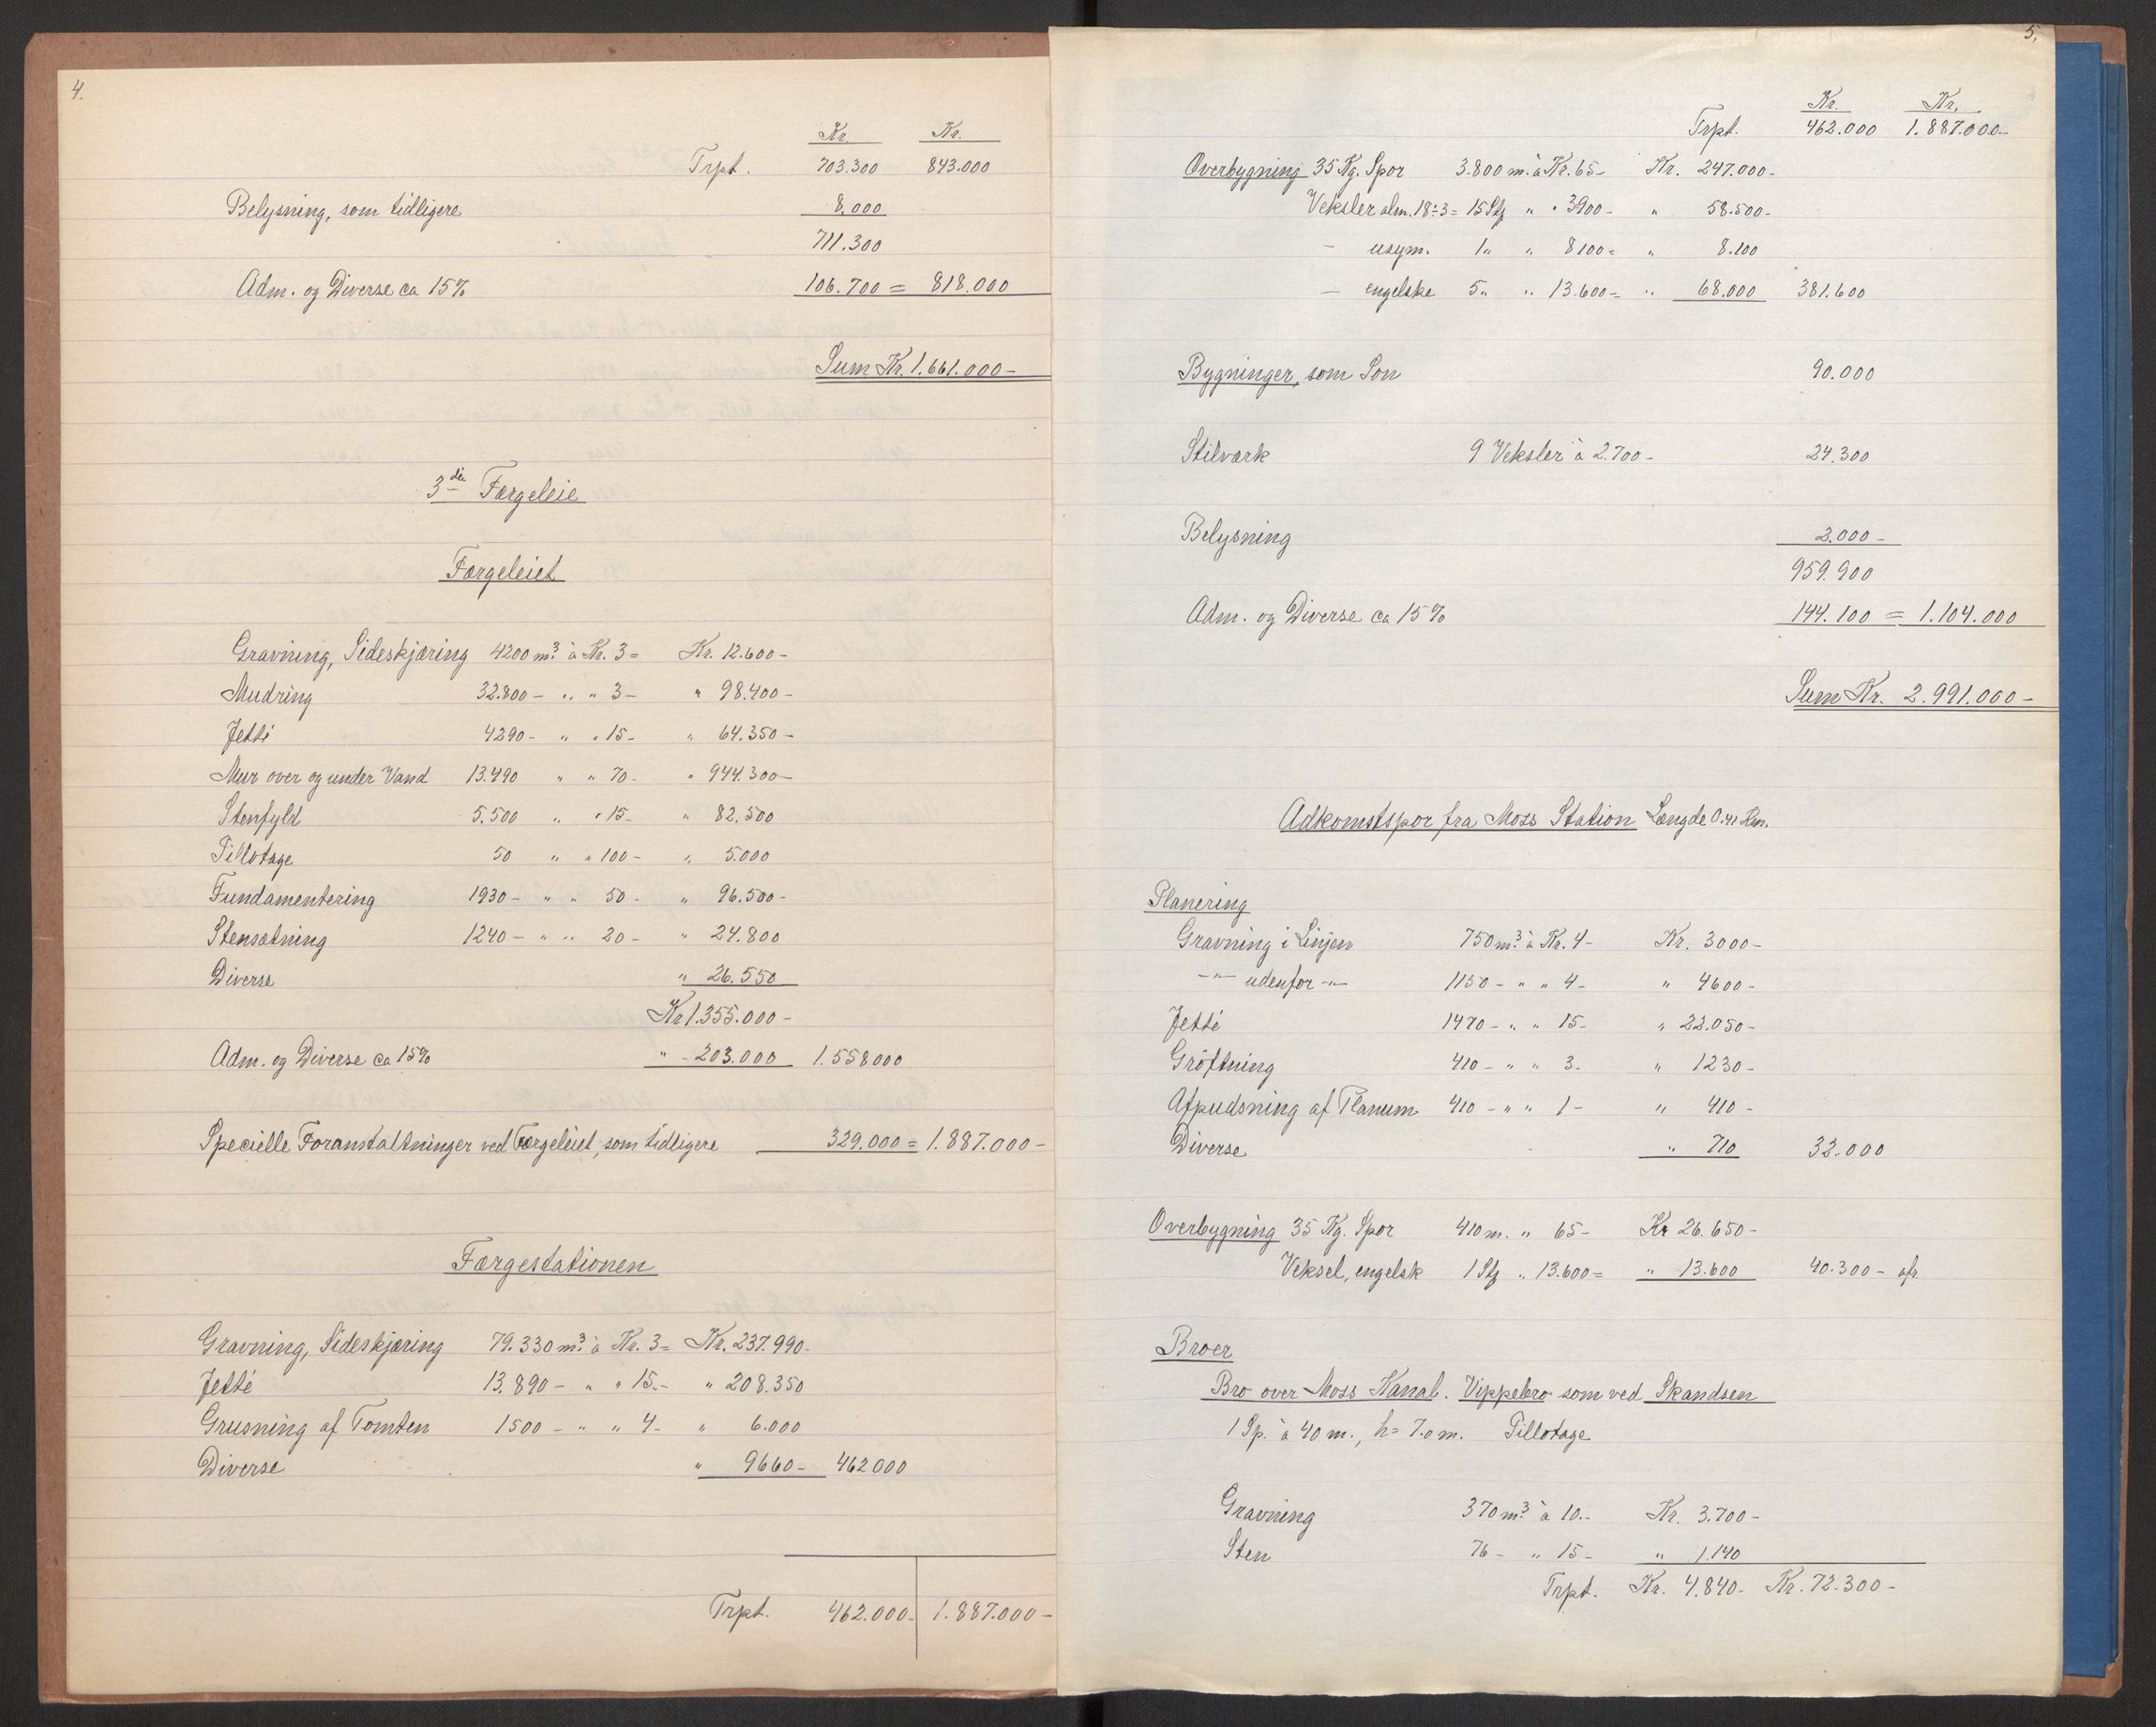 4.
Kr. Kr.
Trpt. 703.300 843.000
Belysning, som tidligere 8.000
711.300
Adm. og Diverse ca 15% 106.700 = 818.000
Sum Kr. 1.661.000-
3die Færgeleie
Færgeleiet
Gravning, Sideskjæring 4200 m³. à Kr. 3= Kr. 12.600-
Mudring 32.800- " " 3- " 98.400-
Jetté 4290- " " 15- " 64.350-
Mur over og under Vand 13.490 " " 70- " 944.300-
Stenfyld 5.500 " " 15- " 82.500
Pillotage 50 " " 100- " 5.000
Fundamentering 1930- " " 50- " 96.500-
Stensætning 1240- " " 20- " 24.800
Diverse " 26.550
Kr 1.355.000-
Adm. og Diverse ca 15% " - 203.000 1.558000
Specielle Foranstaltninger ved Færgeleiet, som tidligere 329.000 = 1.887.000-
Færgestationen
Gravning, Sideskjæring 79.330 m³. à Kr. 3= Kr. 237.990-
Jetté 13.890- " " 15.- " 208.350
Grusning af Tomten 1500- " " 4- " 6.000
Diverse " 9660- 462000
Trpt. 462.000- 1.887.000-
5.
Kr. Kr.
Trpt. 462.000 1.887.000-
Overbygning 35 Kg. Spor 3.800 m. à Kr. 65- Kr. 247.000-
Veksler alm. 18÷3= 15 Stk " " 3900- " 58.500-
- usym. 1 " " 8100= " 8.100
- engelske 5 " " 13.600= " 68.000 381.600
Bygninger, som Son 90.000
Stilværk 9 Veksler à 2.700- 24.300
Belysning 2.000-
959.900
Adm. og Diverse ca 15% 144.100 = 1.104.000
Sum Kr. 2.991.000-
Adkomstspor fra Moss Station Længde 0.41 Km.
Planering
Gravning i Linjen 750 m³. à Kr. 4- Kr. 3000-
-"- udenfor -"- 1150- " " 4- " 4600-
Jetté 1470- " " 15- " 22.050-
Grøftning 410- " " 3- " 1230-
Afpudsning af Planum 410- " " 1- " 410-
Diverse " 710 32.000
Overbygning 35 Kg. Spor 410 m. " 65- Kr 26.650-
Veksel, engelsk 1 Stk " 13.600= " 13.600 40.300- afr
Broer
Bro over Moss Kanal. Vippebro som ved Skandsen
1 Sp. à 40 m., h= 7.0 m. Pillotage
Gravning 370 m³. à 10.- Kr. 3.700-
Sten 76- " 15- " 1.140
Trpt. Kr. 4.840- Kr. 72.300-